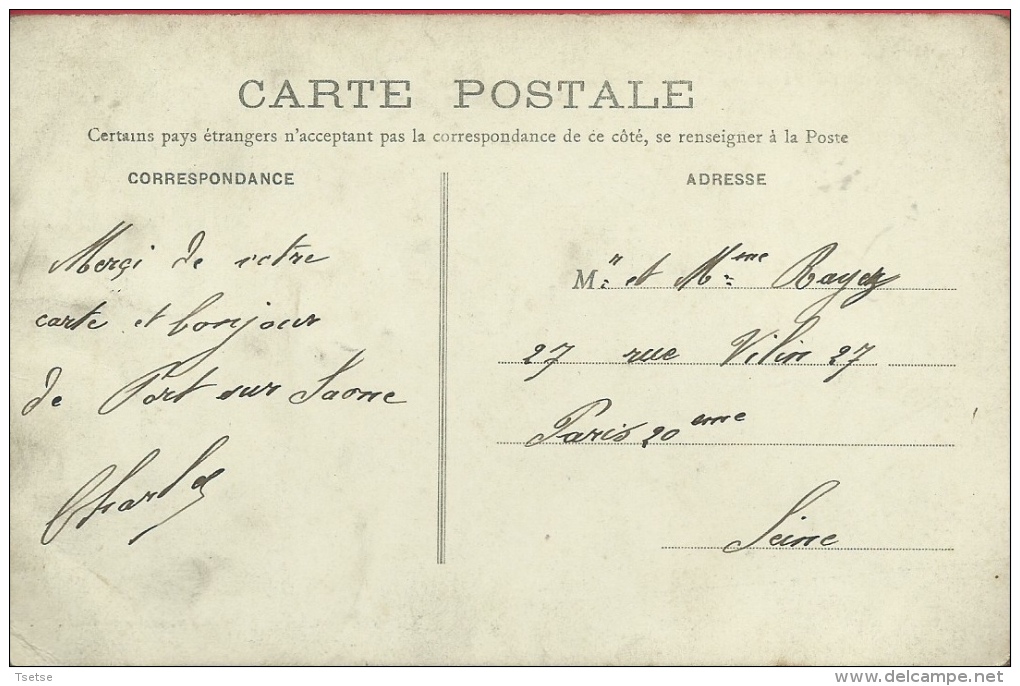 CARTE POSTALE
Certains pays étrangers n'acceptant pas la correspondance de ce côté, se renseigner à la Poste
CORRESPONDANCE
ADRESSE
Merçi de votre
carte et bonjour
de Port sur Saone
Charles
M.r et Mme Rayez
27 rue Vilin 27
Paris 20 eme
Seine
Tsetse
delcampe.net